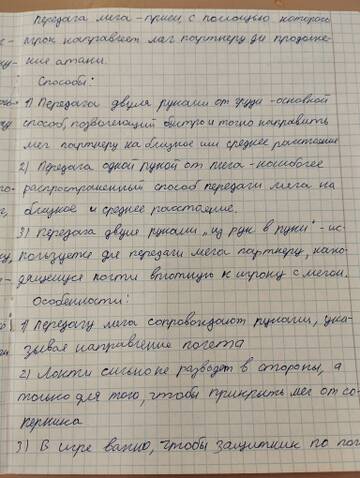 Передача мяча - прием, с помощью которого
игрок направляет мяч партнеру для продолже-
ние атаки.
Способы:
1) Передача двумя руками от груди - основной
способ, позволяющий быстро и точно направить
мяч партнеру на близкое или среднее расстояние
2) Передача одной рукой от плеча - наиболее
распространенный способ передачи мяча на
близкое и среднее расстояние.
3) Передача двумя руками "из рук в руки" - ис-
пользуется для передачи мяча партнеру, нахо-
дящемуся почти вплотную к игроку с мячом.
Особенности:
1) Передачу мяча сопровождают руками, ука-
зывая направление полета
2) Локти сильно не разводят в стороны, а
только для того, чтобы прикрыть мяч от со-
перника
3) В игре важно, чтобы защитник по